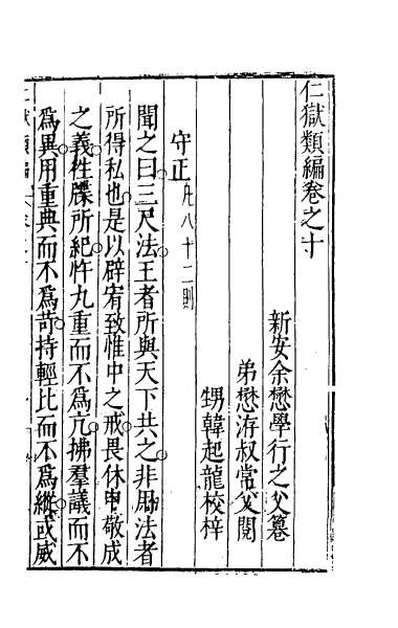 仁獄類編卷之十
新安余懋學行之父纂
弟懋洊叔常父閱
甥韓起龍校梓
守正凡八十二則
聞之曰三尺法王者所與天下共之非用法者
所得私也是以辟宥致惟中之戒畏休申敬成
之義性牒所紀忤九重而不為亢拂羣議而不
為異用重典而不為苛持輕比而不為縱或威